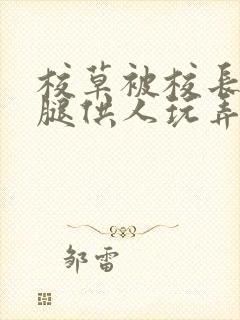 校草被校長
腿供人玩弄
邹雷